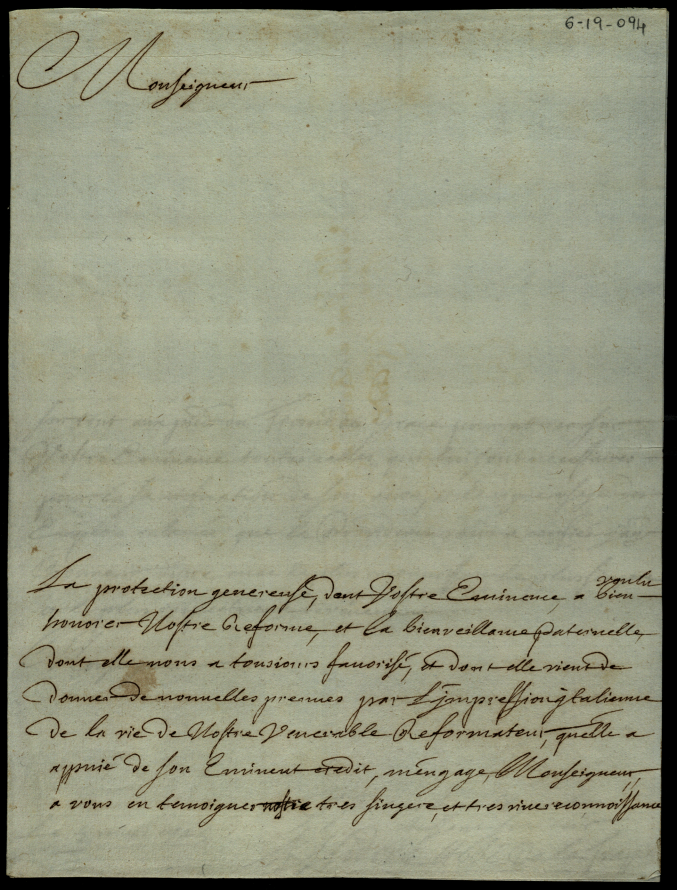 6-19-094
Monseigneur
La protection genereuse, dont Vostre Eminence, a voulu bien
honorer Nostre Reforme, et la bienveillance paternelle,
dont elle nous a tousiours fauorisé, et dont elle vient de
donner de nouuelles preuues par L'impression italienne
de la vie de Nostre Venerable Reformateur, qu'elle a
appuié de son Eminent credit, m'engage, Monseigneur,
a vous en temoigner tres sincere, et tres viue reconnoissance